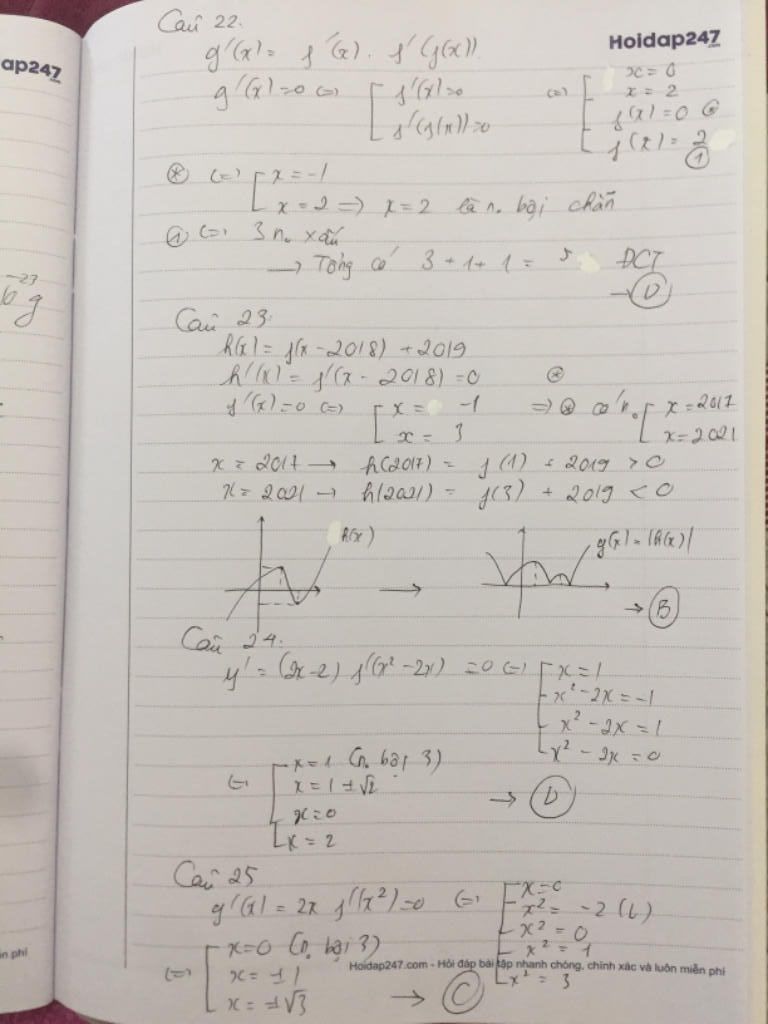 Câu 22.
Hoidap247
.com
ap247
g'(x) = f'(x). f'(f(x)).
g'(x) = 0 <=> [ f'(x) = 0
f'(f(x)) = 0
<=> [ x = 0
x = 2
f(x) = 0 (*)
f(x) = 2 (1)
(*) <=> [ x = -1
x = 2 => x = 2 là n. bội chẵn
(1) <=> 3 n. xấu
-> Tổng có 3 + 1 + 1 = 5 ĐCT
-> (D)
-23
g
Câu 23.
h(x) = f(x - 2018) + 2019
h'(x) = f'(x - 2018) = 0 (*)
f'(x) = 0 <=> [ x = -1
x = 3
=> (*) có n. [ x = 2017
x = 2021
x = 2017 -> h(2017) = f(1) + 2019 > 0
x = 2021 -> h(2021) = f(3) + 2019 < 0
h(x)
->
g(x) = |h(x)|
-> (B)
Câu 24.
y' = (2x-2) f'(x² - 2x) = 0 <=> [ x = 1
x² - 2x = -1
x² - 2x = 1
x² - 2x = 0
<=> [ x = 1 (n. bội 3)
x = 1 ± √2
x = 0
x = 2
-> (D)
Câu 25
g'(x) = 2x f'(x²) = 0 <=> [ x = 0
x² = -2 (L)
x² = 0
x² = 1
x² = 3
<=> [ x = 0 (n. bội 3)
x = ±1
x = ±√3
-> (C)
ễn phí
Hoidap247.com - Hỏi đáp bài tập nhanh chóng, chính xác và luôn miễn phí